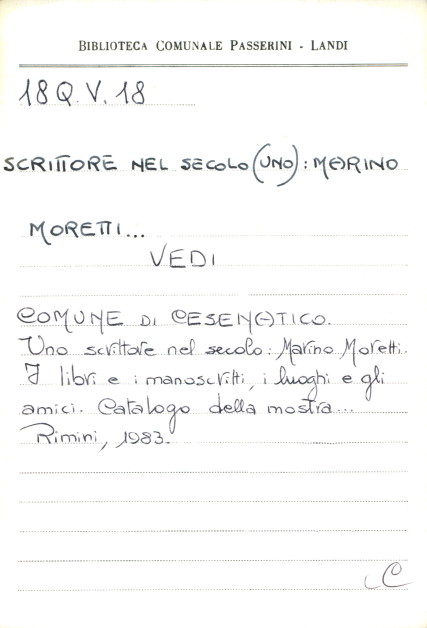 BIBLIOTECA COMUNALE PASSERINI - LANDI
18 Q. V. 18
SCRITTORE NEL SECOLO (UNO): MARINO
MORETTI...
VEDI
COMUNE DI CESENATICO.
Uno scrittore nel secolo: Marino Moretti.
I libri e i manoscritti, i luoghi e gli
amici. Catalogo della mostra...
Rimini, 1983.
C